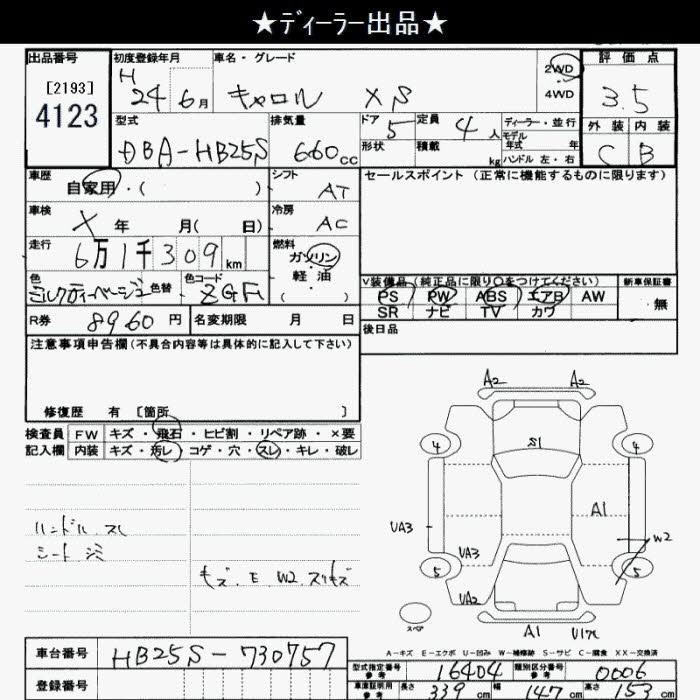 ★ディーラー出品★
出品番号
[2193]
4123
初度登録年月
H 24年 6月
車名・グレード
キャロル XS
2WD
4WD
評価点
3.5
外装 内装
C B
型式
DBA-HB25S
排気量
660cc
ドア 5
形状
定員 4人
積載 kg
ディーラー・並行
モデル年式 年
ハンドル 左・右
車歴
自家用・( )
シフト
AT
セールスポイント(正常に機能するものに限ります)
車検
X 年 月( 日)
冷房
AC
走行
6万1千309km
燃料
ガソリン
軽・油
( )
色
ミルクティーベージュ
色替
色コード
ZGF
V装備品(純正品に限り○をつけてください)
PS PW ABS エアB AW
SR ナビ TV カワ
新車保証書
無
R券 8960円
名変期限 月 日
後日品
注意事項申告欄(不具合内容等は具体的に記入して下さい)
修復歴 有 [箇所 ]
検査員 FW キズ・飛石・ヒビ割・リペア跡・×要
記入欄 内装 キズ・汚レ・コゲ・穴・スレ・キレ・破レ
ハンドル スレ
シート シミ
キズ.E W2 スリキズ
A2 A2
4 S1 4
A1
UA3
UA3
W2
5 5
UA2
スペア
A1 U17C
A-キズ E-エクボ U-凹み W-補修跡 S-サビ C-腐食 XX-交換済
車台番号 HB25S-730757
登録番号
型式指定番号 参考 16404 類別区分番号 参考 0006
車庫証明用 参考 長さ 339cm 幅 147cm 高さ 153cm